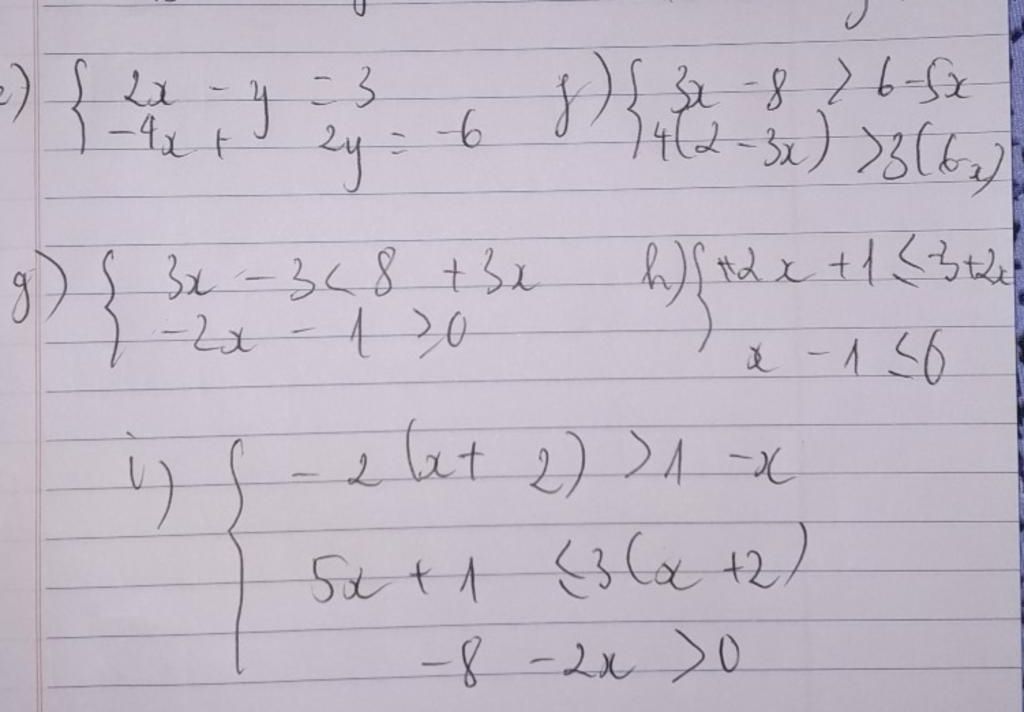 e) { 2x - y = 3
-4x + 2y = -6
f) { 3x - 8 > 6 - 5x
4(2 - 3x) > 3(6x)
g) { 3x - 3 < 8 + 3x
-2x - 1 ≥ 0
h) { +2x + 1 ≤ -3 + 2x
x - 1 ≤ 6
i) { -2(x + 2) > 1 - x
5x + 1 ≤ 3(x + 2)
-8 - 2x > 0